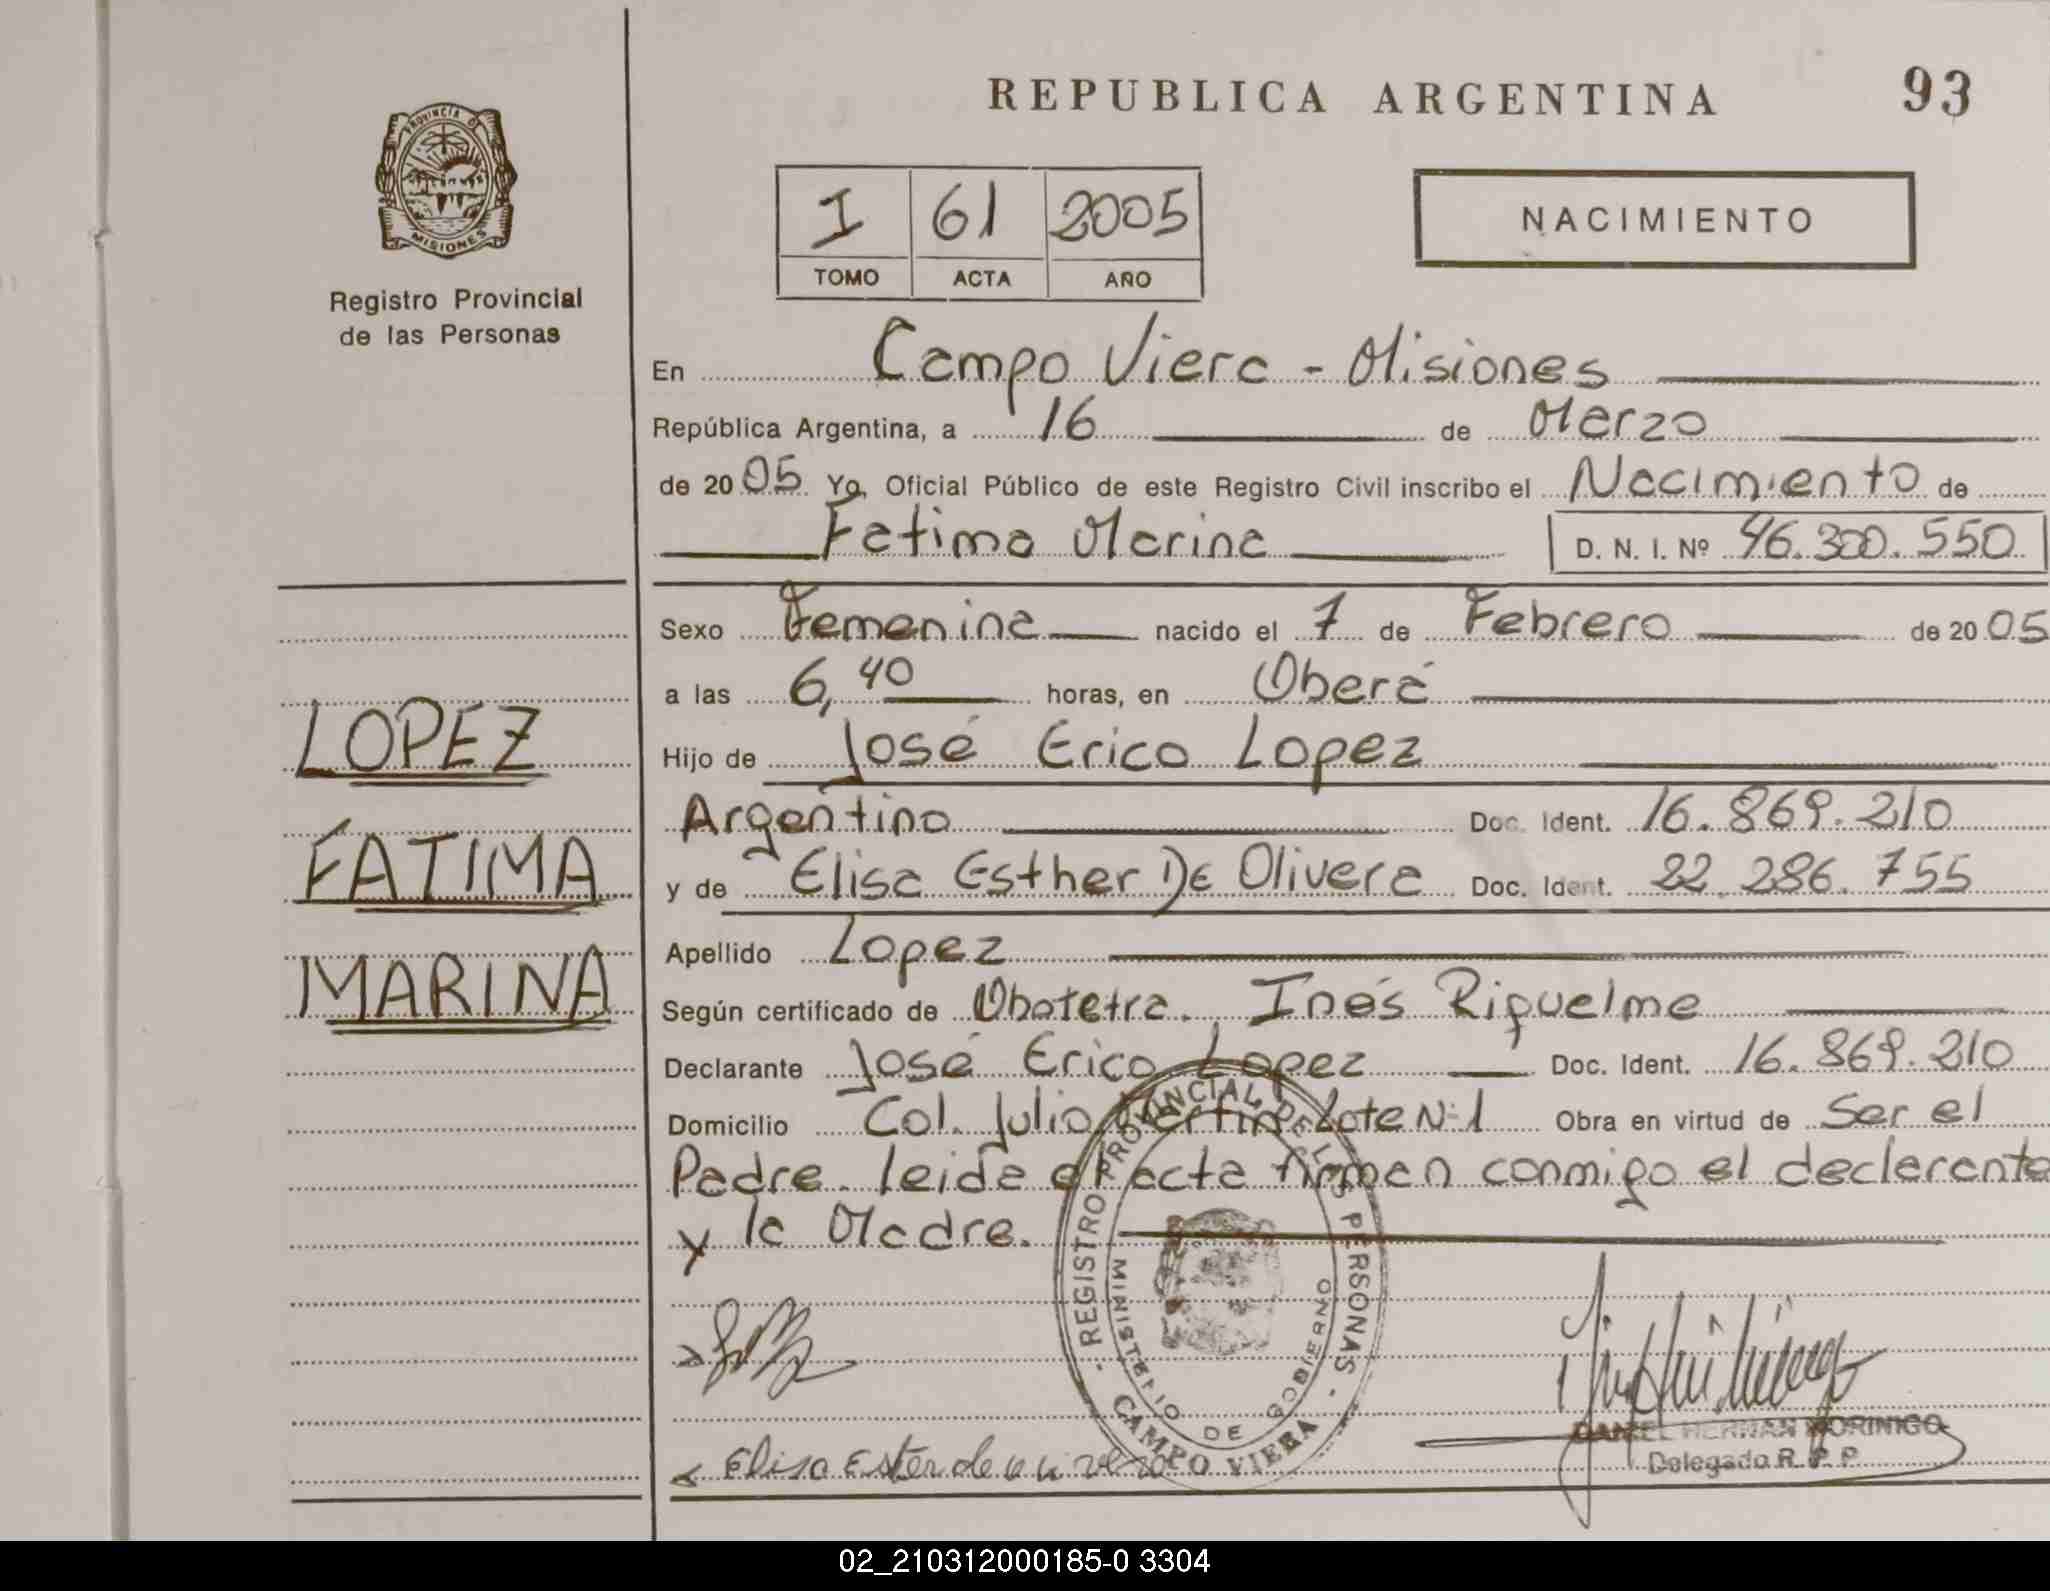 REPUBLICA ARGENTINA 93
PROVINCIA DE
MISIONES
Registro Provincial
de las Personas
I 61 2005
TOMO ACTA AÑO
NACIMIENTO
En Campo Viera - Misiones
República Argentina, a 16 de Marzo
de 2005 Yo, Oficial Público de este Registro Civil inscribo el Nacimiento de
Fatima Marina D. N. I. Nº 46.300.550
Sexo Femenina nacido el 7 de Febrero de 2005
a las 6,40 horas, en Oberá
Hijo de José Erico Lopez
Argentino Doc. Ident. 16.869.210
y de Elisa Esther De Olivera Doc. Ident. 22.286.755
Apellido Lopez
Según certificado de Obstetra. Inés Riquelme
Declarante José Erico Lopez Doc. Ident. 16.869.210
Domicilio Col. Julio Martin Lote Nº1 Obra en virtud de Ser el
Padre. leida el acta firman conmigo el declarante
y la Madre.
LOPEZ
FATIMA
MARINA
REGISTRO PROVINCIAL DE LAS PERSONAS
MINISTERIO DE GOBIERNO
CAMPO VIERA
Elisa Ester de
DANIEL HERNAN MORINIGO
Delegado R. P. P.
02_210312000185-0 3304